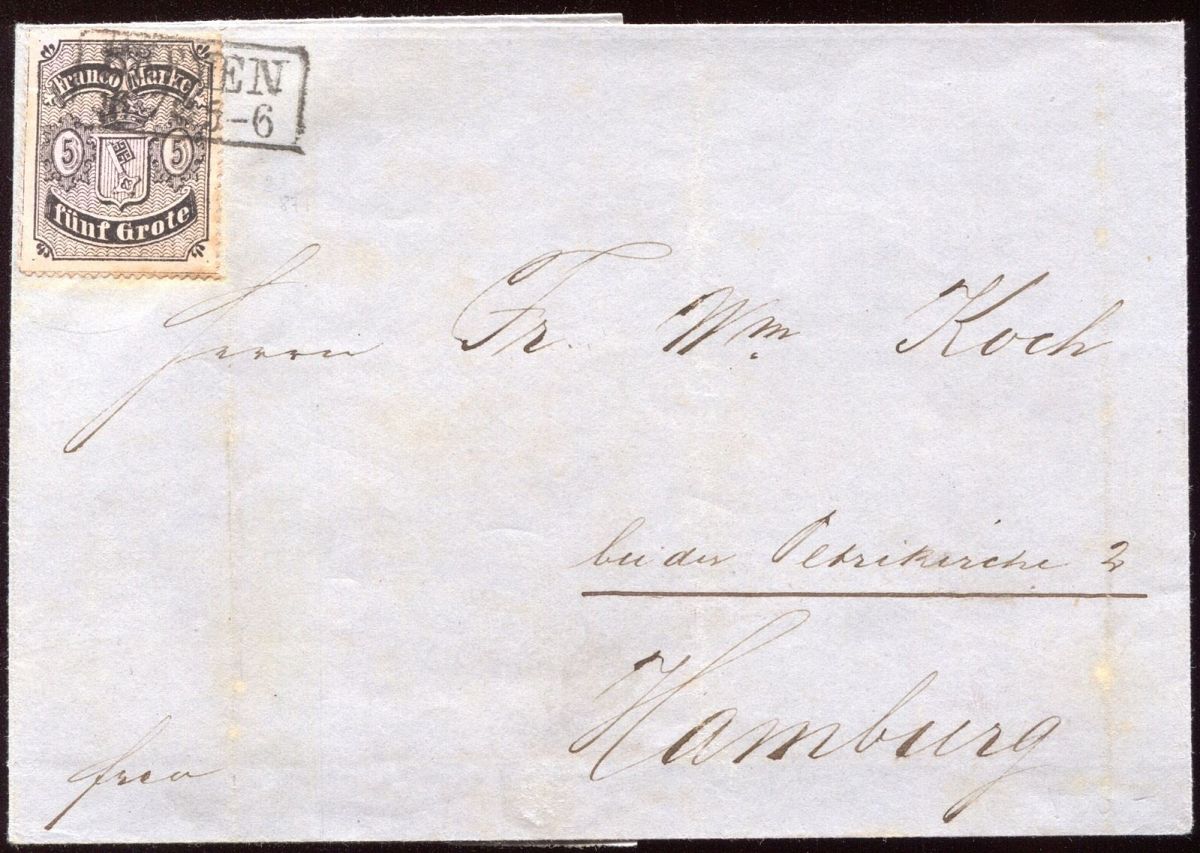 Franco Marke
5 5
fünf Grote
BREMEN
5-6
Herrn Fr. Wm Koch
bei der Petrikirche 2
Hamburg
frco